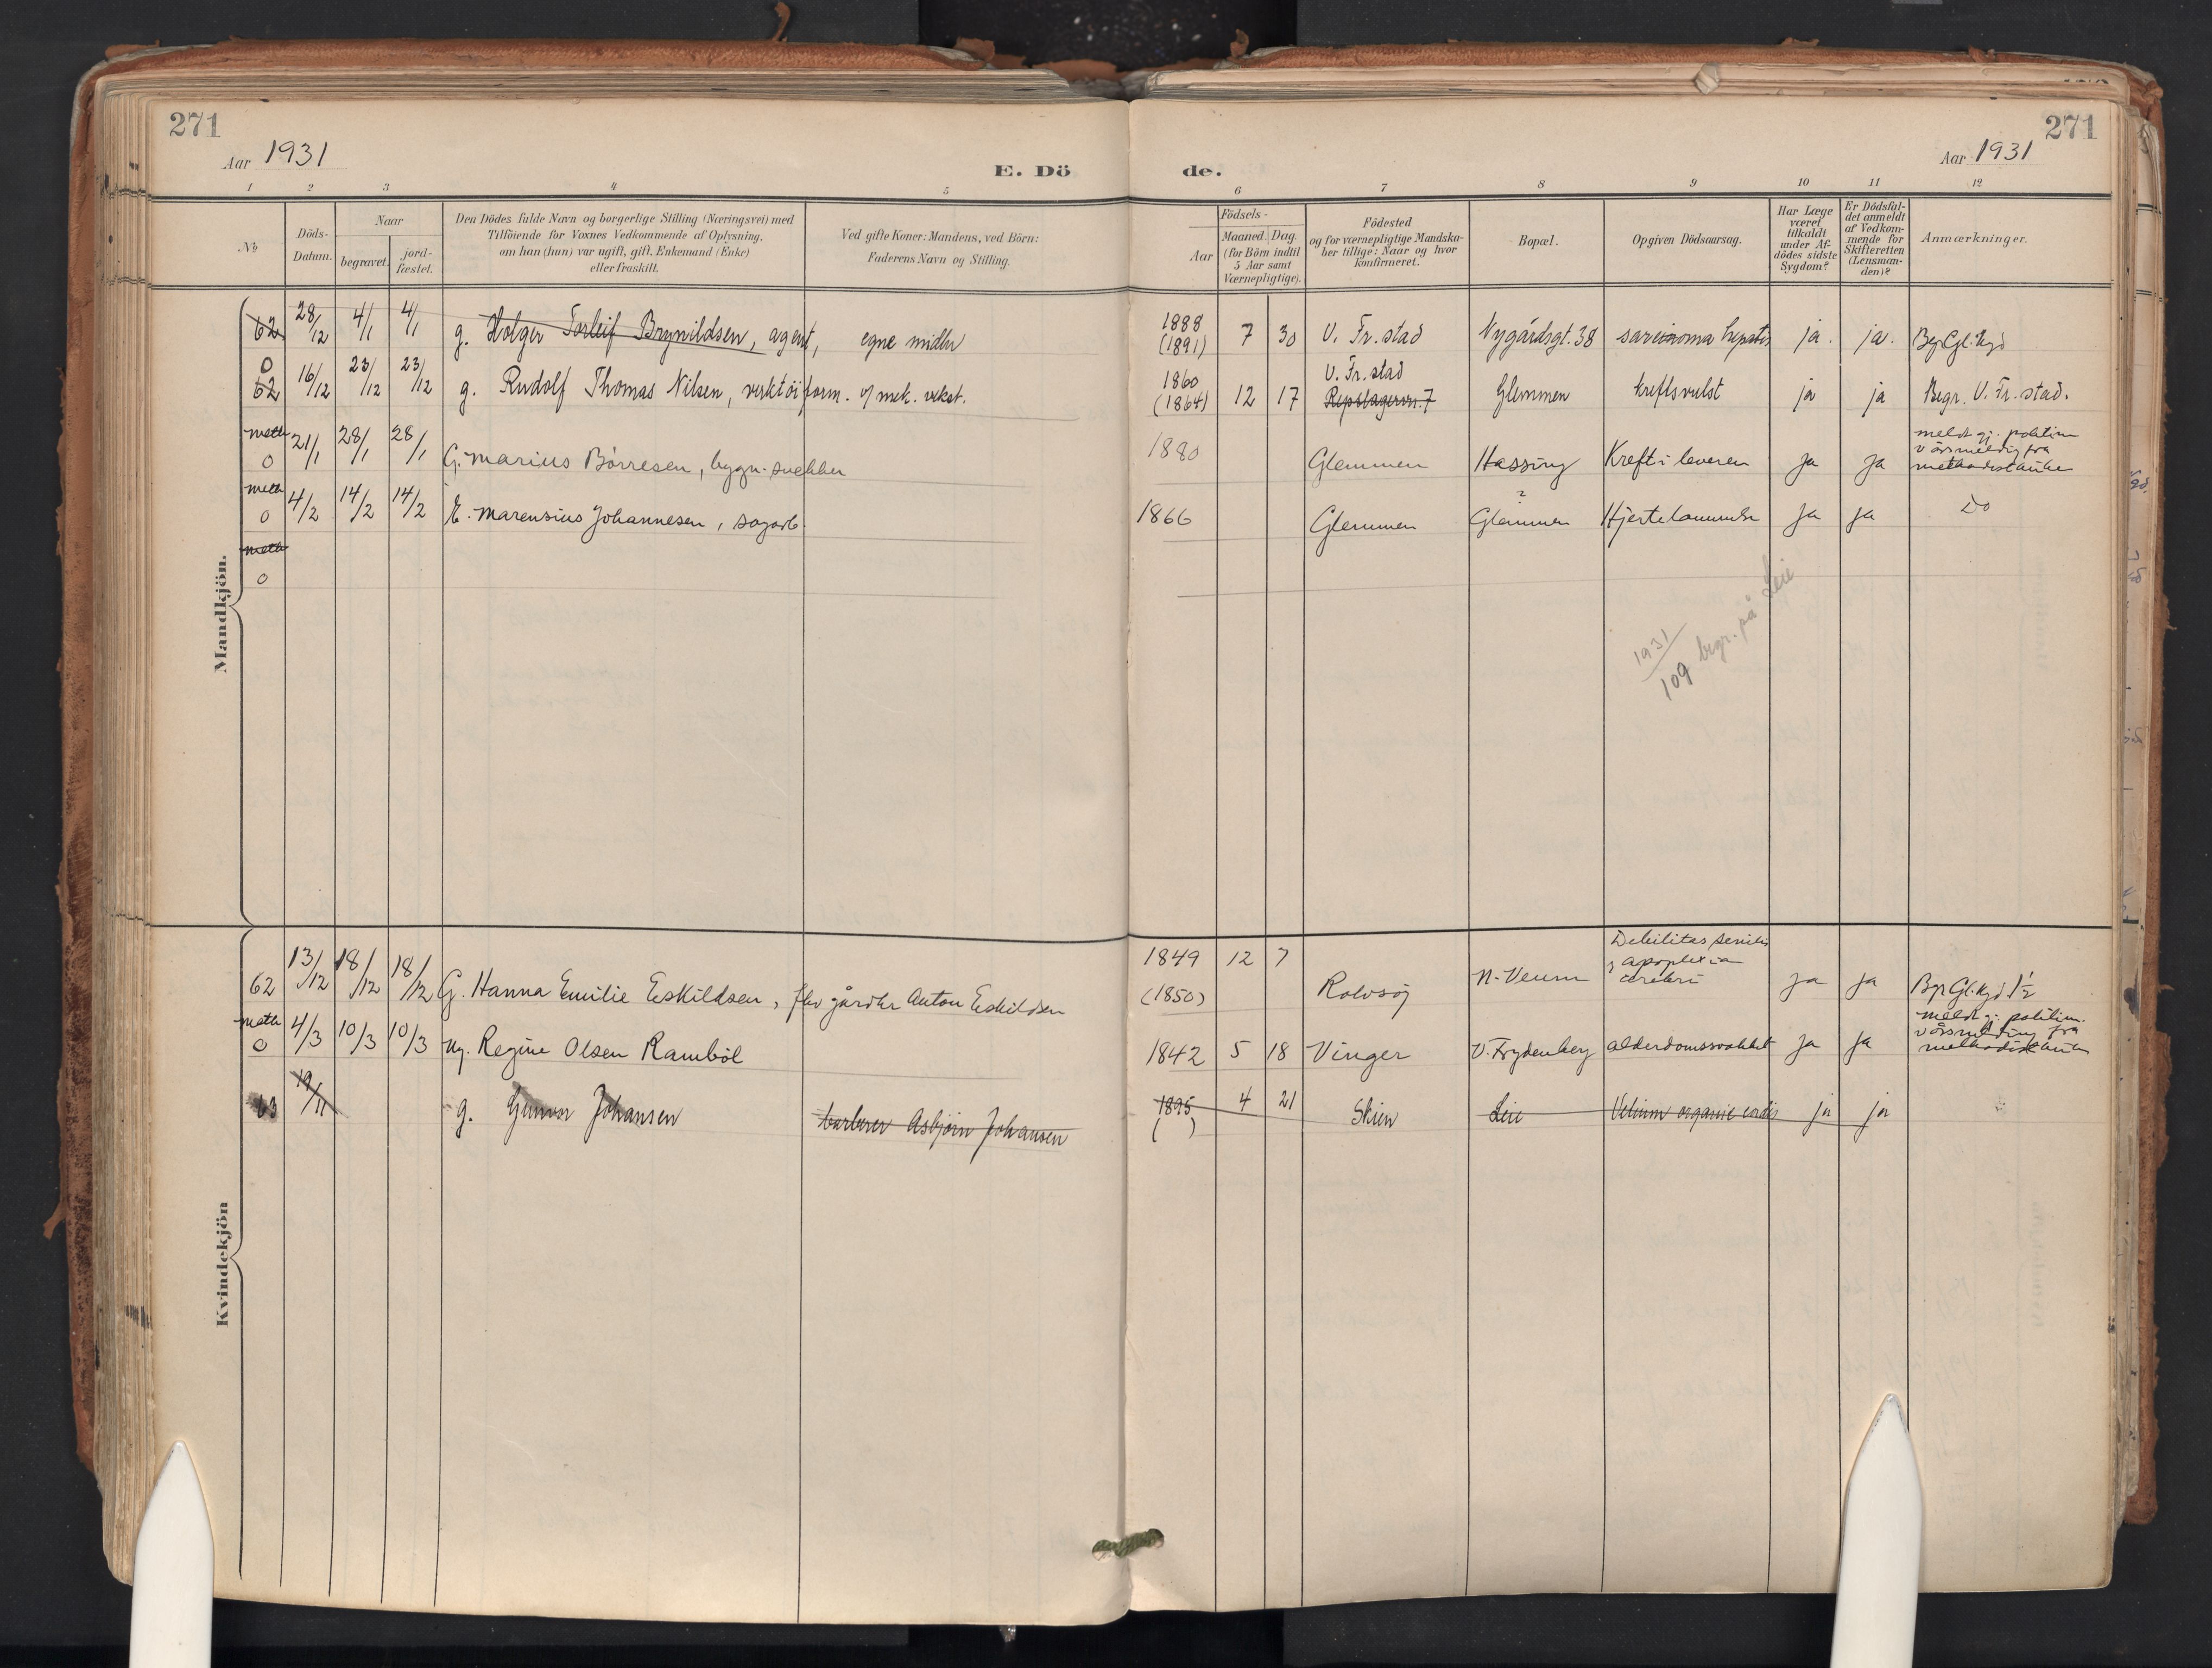 271
Aar 1931
E. Dö
1 2 3 4 5
No
Döds-
Datum.
Naar
begravet.
jord-
fæstet.
Den Dödes fulde Navn og borgerlige Stilling (Næringsvei) med
Tilföiende for Voxnes Vedkommende af Oplysning,
om han (hun) var ugift, gift, Enkemand (Enke)
eller fraskilt.
Ved gifte Koner: Mandens, ved Börn:
Faderens Navn og Stilling.
271
Aar 1931
de.
6 7 8 9 10 11 12
Födsels-
Aar
Maaned. Dag.
(for Börn indtil
5 Aar samt
Værnepligtige).
Födested
og for værnepligtige Mandska-
ber tillige: Naar og hvor
konfirmeret.
Bopæl.
Opgiven Dödsaarsag.
Har Læge
været
tilkaldt
under Af-
dödes sidste
Sygdom?
Er Dödsfal-
det anmeldt
af Vedkom-
mende for
Skifteretten
(Lensman-
den)?
Anmærkninger.
Mandkjön.
62 28/12 4/1 4/1 g. Holger Torleif Brynildsen, agent, egne midler 1888 (1891) 7 30 V. Fr.stad Nygårdsgt. 38 sarcinoma hepatis ja. ja. Begr Gl. kgd
0
62 16/12 23/12 23/12 g. Rudolf Thomas Nilsen, verktöiform. v/ mek. vekst. 1860 (1864) 12 17 V. Fr.stad Repslagervn. 7 Glemmen kreftsvulst ja ja Begr. V. Fr. stad.
meth
0 21/1 28/1 28/1 G. Marius Börresen, bygn. snekker 1880 Glemmen Hassing Kreft i leveren ja ja meldt gj. politim
meth
0 4/2 14/2 14/2 E. Marensius Johannesen, sagarb. 1866 Glemmen Glemmen ? Hjertelammelse ja ja Do
meth
0
1931/109 begr. på Leie
Kvindekjön
62 13/12 18/12 18/12 G. Hanna Emilie Eskildsen, fhv gårdbr Anton Eskildsen 1849 (1850) 12 7 Rolvsøj N. Veum Debilitas senilis
apoplexia
cerebri ja ja Bgr Gl. kgd
meth
0 4/3 10/3 10/3 ug. Regine Olsen Ramböl 1842 5 18 Vinger V. Frydenberg alderdomssvakhet ja ja meldt gj. politim.
63 19/11 g. Gunvor Johansen barberer Asbjörn Johansen 1895 ( ) 4 21 Skien Leie Vitium organic cordis ja ja